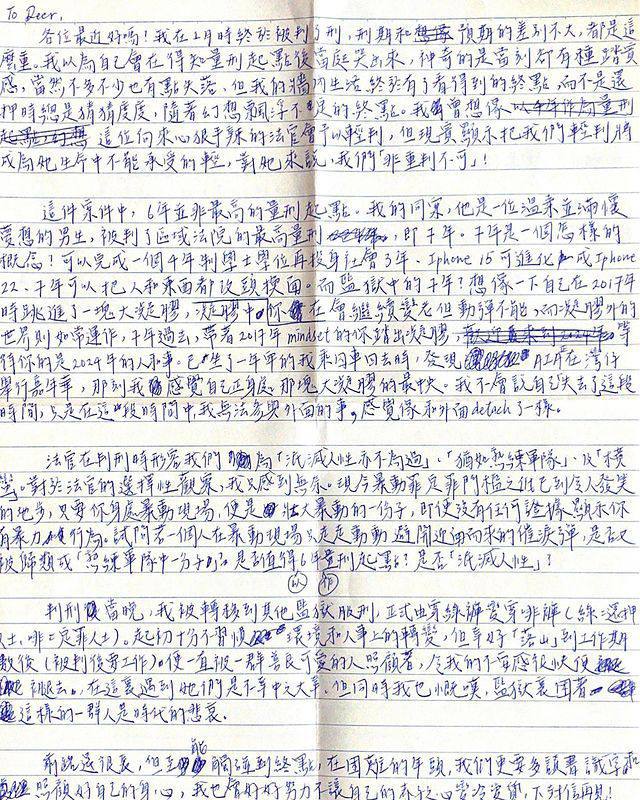 To Deer,
各位最近好嗎！我在2月時終於被判了刑，刑期和預期的差別不大，都是這
麼重。我以為自己會在得知量刑起點後當庭哭出來，神奇的是當刻卻有種踏實
感，當然不多不少也有點失落，但我的牆內生活終於有了看得到的終點，而不是還
押時總是猜猜度度，隨著幻想飄浮不定的終點。我曾想像
這位向來心狠手辣的法官會予以輕判，但現實顯示把我們輕判將
成為她生命中不能承受的輕，對她來說，我們「非重判不可」！
這件案件中，6年並非最高的量刑起點。我的同案，他是一位溫柔並滿懷
夢想的男生，被判了區域法院的最高量刑，即7年。7年是一個怎樣的
概念！可以完成一個4年制學士學位再投身社會3年、Iphone 15可進化成Iphone
22、7年可以把人和東西都改頭換面。而監獄中的7年？想像一下自己在2017年
時跳進了一塊大凝膠，凝膠中你在會繼續變老但動彈不能，而凝膠外的
世界則如常運作，7年過去，帶著2017年mindset的你踏出凝膠，等
待你的是2024年的人和事。已坐了一年半的我乘囚車回去時，發現在灣仔
舉行嘉年華，那刻我感覺自己正身處那塊大凝膠的最中央。我不會說自己失去了這段
時間，只是在這段時間中，我無法參與外面的事，感覺像和外面detach了一樣。
法官在判刑時形容我們為「泯滅人性亦不為過」、「猶如熟練軍隊」及「橫
蠻」。對於法官的選擇性觀察，我只感到無奈。現今暴動罪定罪門檻之低已到令人發笑
的地步，只要你身處暴動現場，便是壯大暴動的一份子，即使沒有任何證據顯示你
有暴力行為。試問若一個人在暴動現場只是走動動避開迎面而來的催淚彈，是否又
被歸類成「熟練軍隊中一分子」？是否值得以6年量刑起點？是否「泯滅人性」？
判刑當晚，我被轉移到其他監獄服刑，正式由穿綠褲變穿啡褲（綠：還押
人士，啡：定罪人士）。起初十分不習慣環境和人事上的轉變，但幸好「落山」到工作期
數後（被判後要工作）。便一直被一群善良可愛的人照顧著，令我的不安感很快便
褪去。在這裏遇到她們是不幸中之大幸。但同時我也慨嘆，監獄裏困著
這樣的一群人是時代的悲哀。
前路還很長，但至能觸碰到終點，在困難的年頭，我們更要多讀書識字和
照顧好自己的身心，我也會好好努力不讓自己的赤子之心